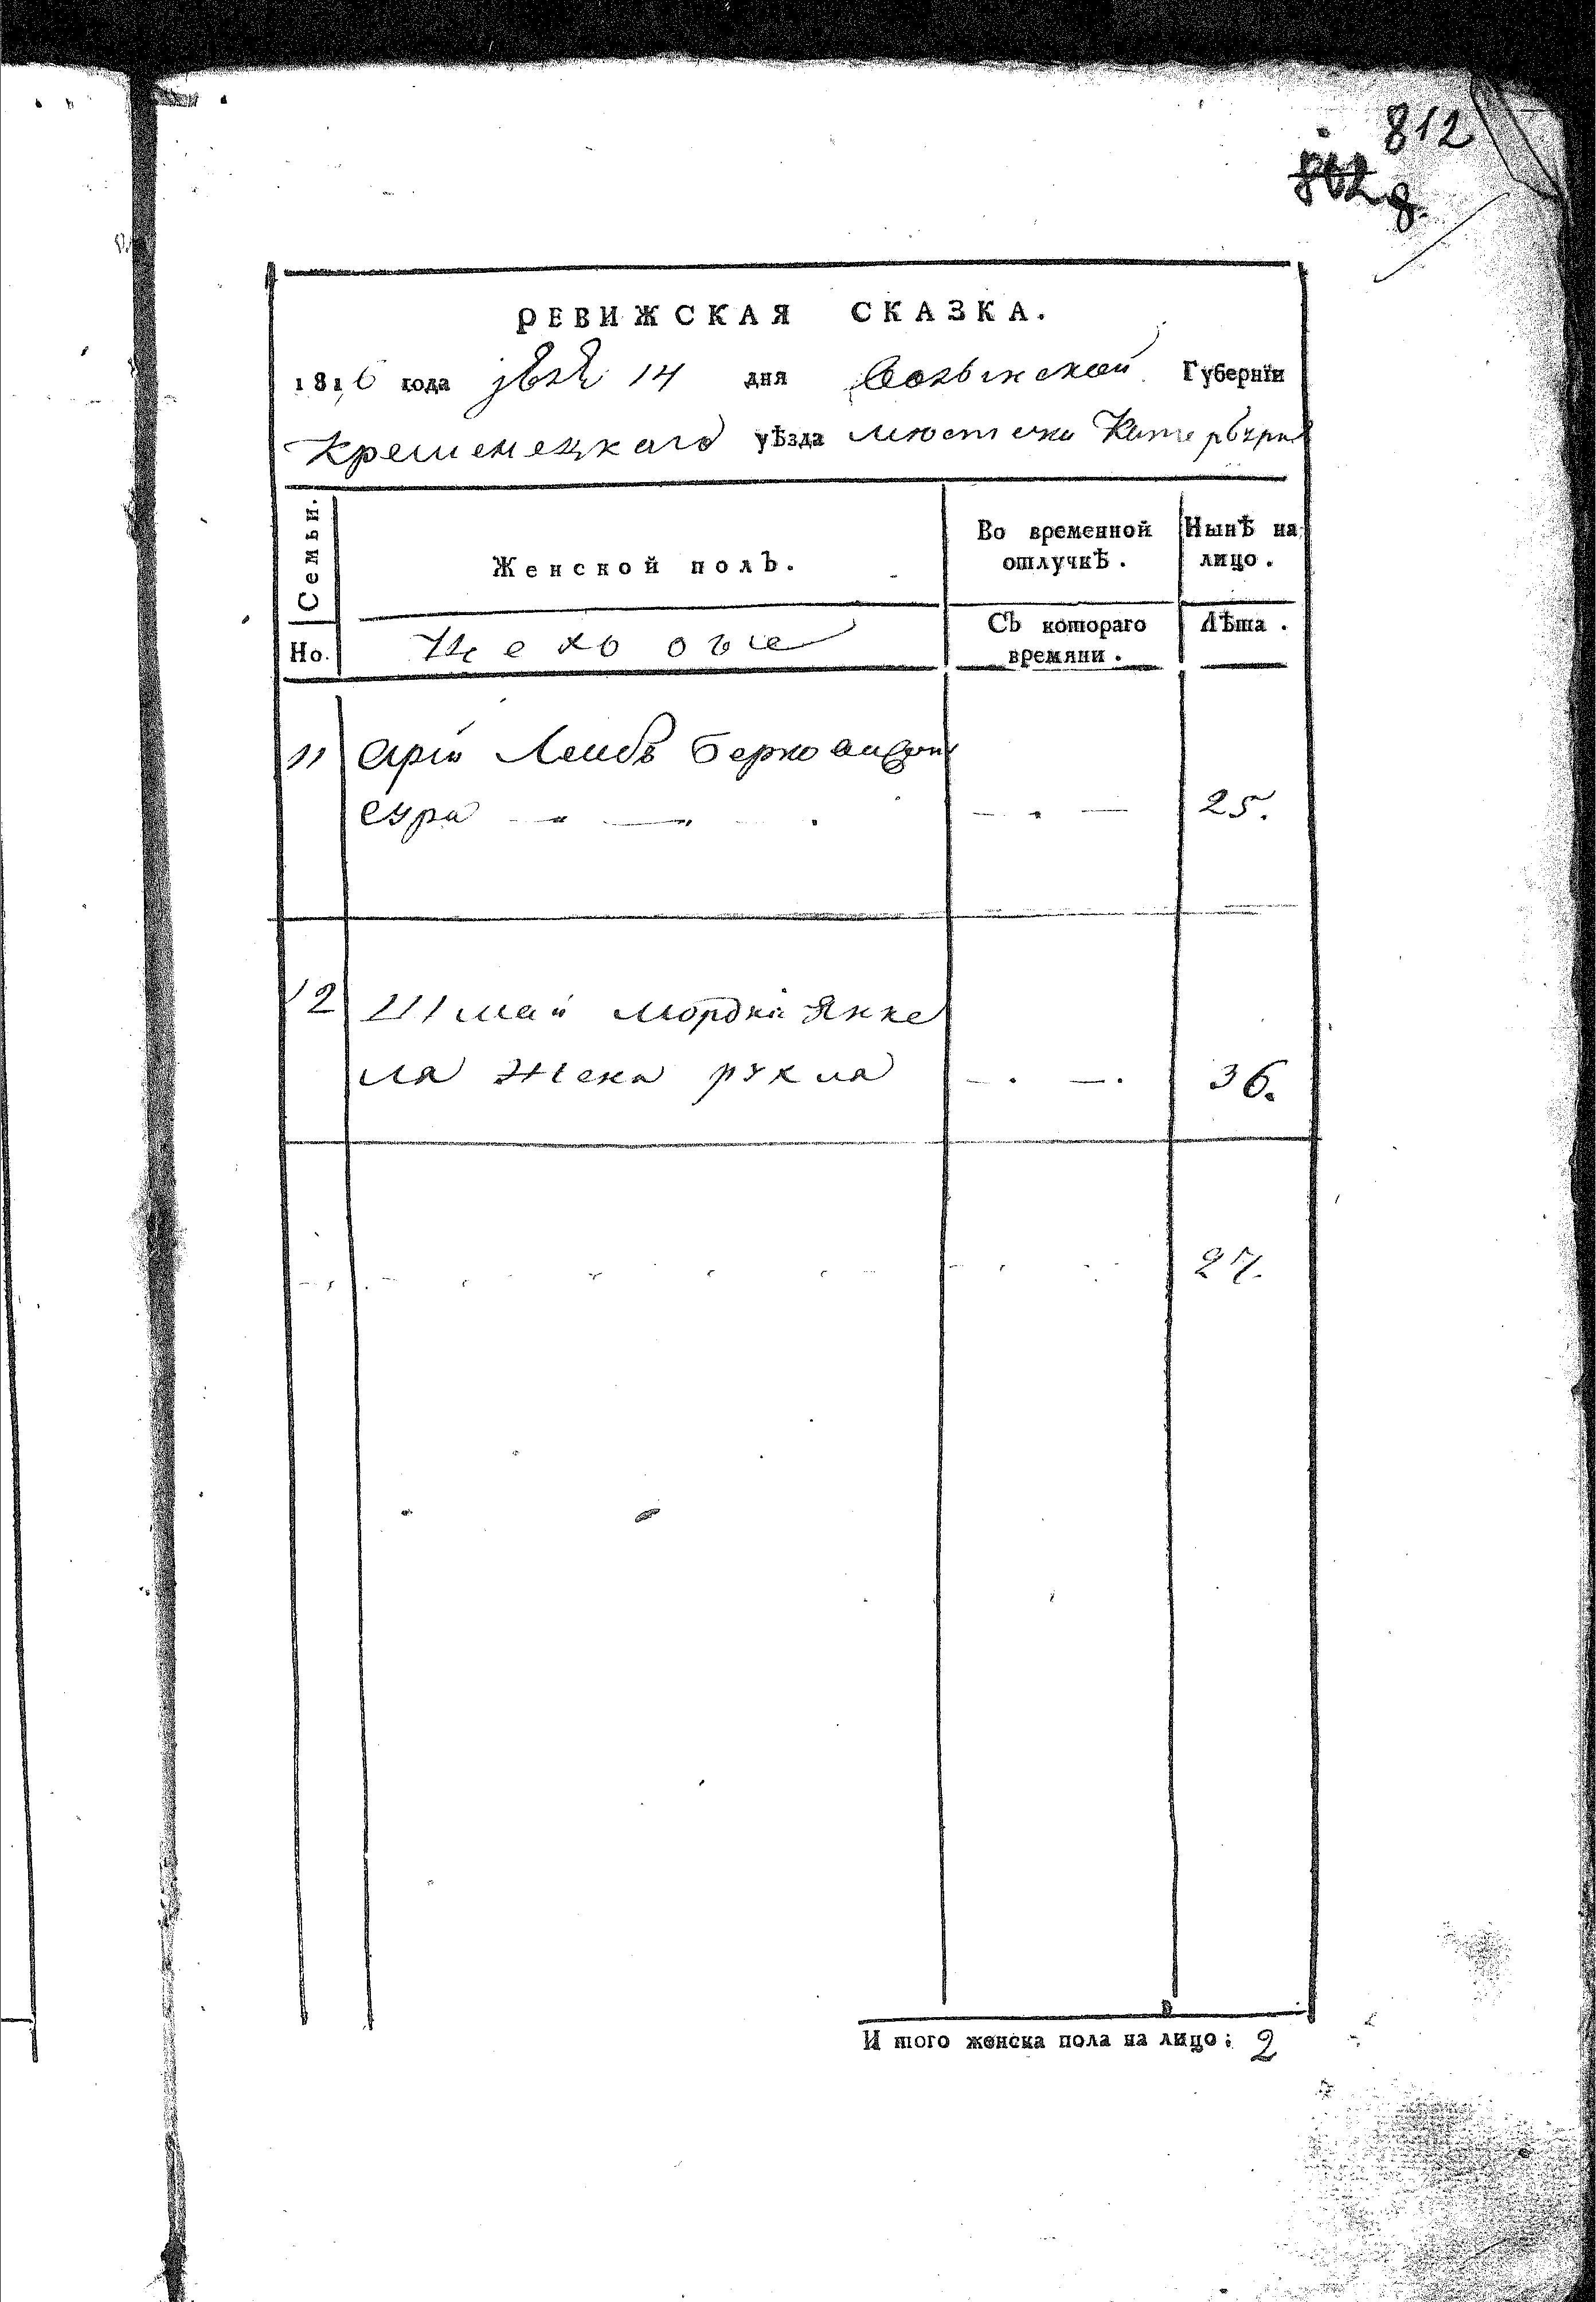 812
8.
РЕВИЖСКАЯ СКАЗКА.
1816 года 14 дня Волынской Губернїи
Кременецкаго уѣзда местечка
Семьи. Женской полъ. Во временной отлучкѣ. Нынѣ на лицо.
Но. Цеховые Съ котораго времяни. Лѣта.
11 Арїи Леибъ Берко
Сура 25.
12 Шмаи Мордки Янке
ля жена рухля 36.
27.
И того женска пола на лицо: 2